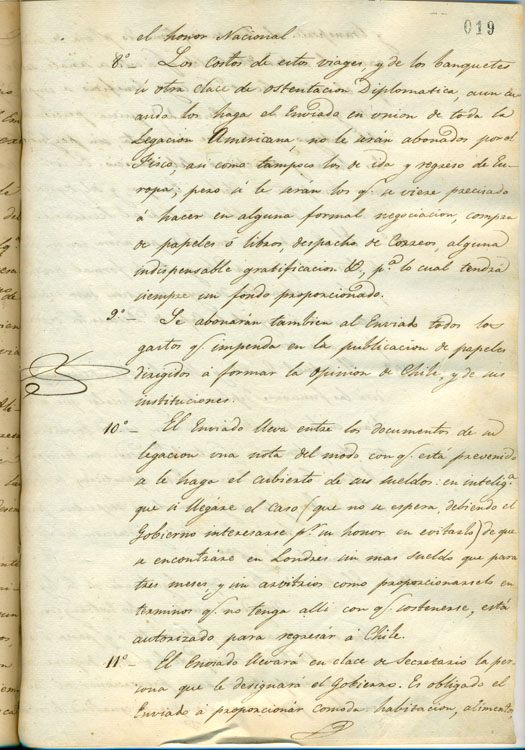 019
el honor Nacional
8º— Los costos de estos viages, y de los banquetes
ú otra clace de ostentacion Diplomatica, aun cu-
ando los haga el Enviado en union de toda la
Legacion Americana, no le serán abonados por el
Fisco, asi como tampoco los de ida y regreso de Eu-
ropa; pero si le serán los q.e se viere precisado
á hacer en alguna formal negociacion, compra
de papeles ó libros, despacho de Correos, alguna
indispensable gratificacion &, p.a lo cual tendrá
siempre un fondo proporcionado.
9º— Se abonarán tambien al Enviado todos los
gastos q.e impenda en la publicacion de papeles
dirigidos á formar la Opinion de Chile, y de sus
instituciones.
10º— El Enviado lleva entre los documentos de su
legacion una nota del modo con q.e está prevenido
se le haga el cubierto de sus sueldos: en intelig.a
que si llegáre el caso (que no se espera, debiendo el
Gobierno interesarse p.r su honor en evitarlo) de que
se encontráre en Londres sin mas sueldo que para
tres meses, y sin arvitrios como proporcionarselo en
terminos q.e no tenga alli con q.e sostenerse, está
autorizado para regresár á Chile.
11º— El Enviado llevará en clace de Secretario la per-
sona que le designará el Gobierno. Es obligado el
Enviado á proporcionár comoda habitacion, alimentos